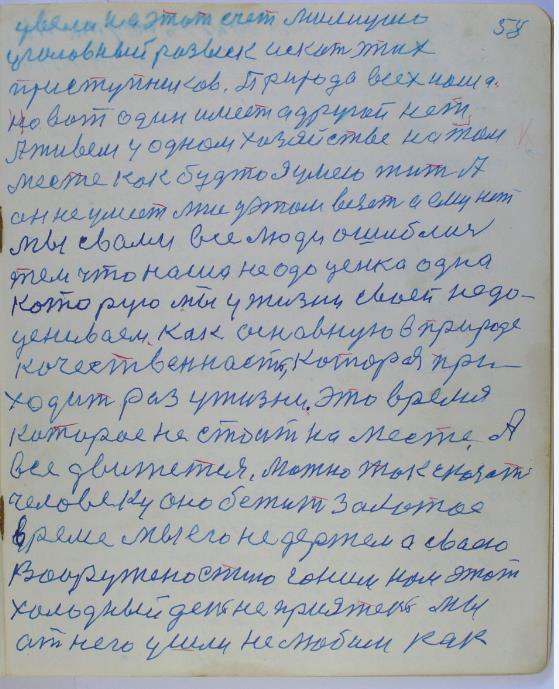 58
увела на этот счет милицию
уголовный розыск искат этих
приступников. Природа всех наша.
Но вот один имеет а другой нет
А живем у одном хозяйстве на том
месте как будто я умею жит А
он не умеет мне у этом везет а ему нет
мы свами все люди ошиблис
тем что наша недооценка одна
которую мы у жизни своей недо-
цениваем. Как основную в природе
качественност, которая при-
ходит раз у жизни. Это время
которое не стоит на месте. А
все движется. Можно так сказат
человеку оно бежит золотое
време мы его не держем а сваею
вооруженостию гоним нам этот
холодный ден не приятен мы
от него ушли не любим как